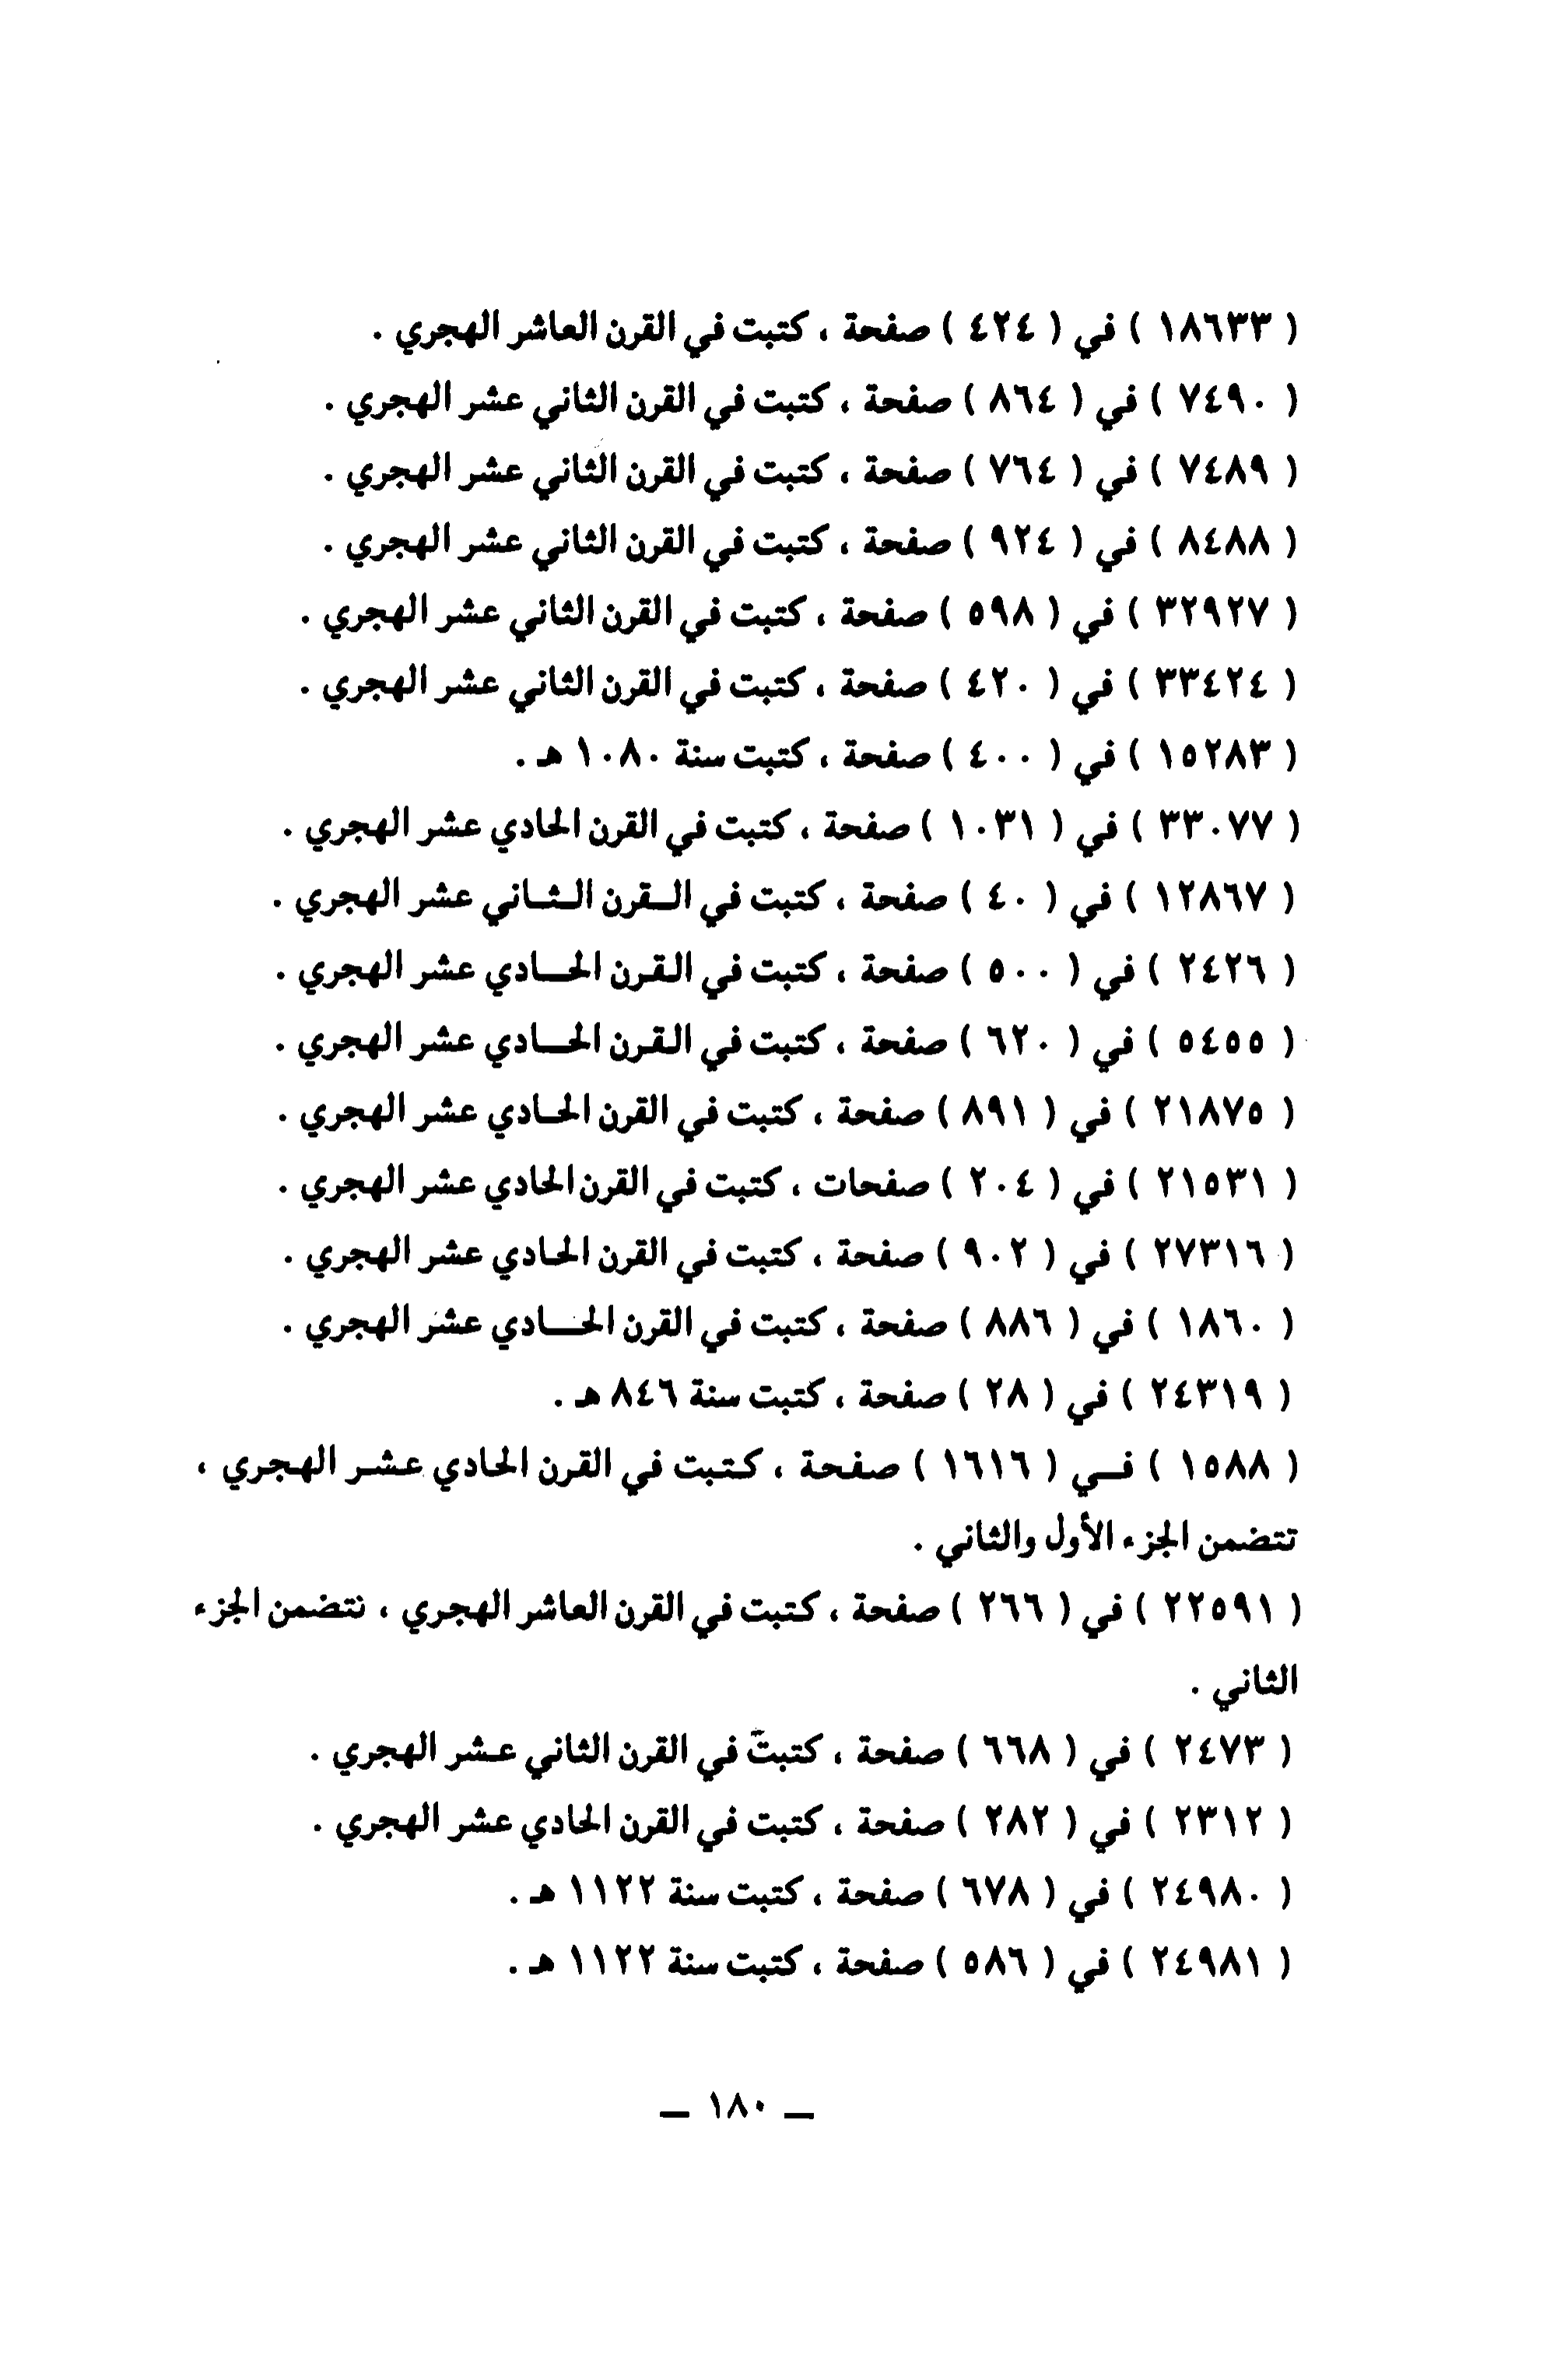 ( ١٨٦٣٣ ) في ( ٤٢٤ ) صفحة ، كتبت في القرن العاشر الهجري .
( ٧٤٩٠ ) في ( ٨٦٤ ) صفحة ، كتبت في القرن الثاني عشر الهجري .
( ٧٤٨٩ ) في ( ٧٦٤ ) صفحة ، كتبت في القرن الثاني عشر الهجري .
( ٨٤٨٨ ) في ( ٩٢٤ ) صفحة ، كتبت في القرن الثاني عشر الهجري .
( ٣٢٩٢٧ ) في ( ٥٩٨ ) صفحة ، كتبت في القرن الثاني عشر الهجري .
( ٣٣٤٢٤ ) في ( ٤٢٠ ) صفحة ، كتبت في القرن الثاني عشر الهجري .
( ١٥٢٨٣ ) في ( ٤٠٠ ) صفحة ، كتبت سنة ١٠٨٠ هـ .
( ٣٣٠٧٧ ) في ( ١٠٣١ ) صفحة ، كتبت في القرن الحادي عشر الهجري .
( ١٢٨٦٧ ) في ( ٤٠ ) صفحة ، كتبت في الـقرن الـثـاني عشر الهجري .
( ٢٤٢٦ ) في ( ٥٠٠ ) صفحة ، كتبت في القرن الحـادي عشر الهجري .
( ٥٤٥٥ ) في ( ٦٢٠ ) صفحة ، كتبت في القرن الحـادي عشر الهجري .
( ٢١٨٧٥ ) في ( ٨٩١ ) صفحة ، كتبت في القرن الحادي عشر الهجري .
( ٢١٥٣١ ) في ( ٢٠٤ ) صفحات ، كتبت في القرن الحادي عشر الهجري .
( ٢٧٣١٦ ) في ( ٩٠٢ ) صفحة ، كتبت في القرن الحادي عشر الهجري .
( ١٨٦٠ ) في ( ٨٨٦ ) صفحة ، كتبت في القرن الحـادي عشر الهجري .
( ٢٤٣١٩ ) في ( ٢٨ ) صفحة ، كتبت سنة ٨٤٦ هـ .
( ١٥٨٨ ) فـي ( ١٦١٦ ) صفحة ، كتبت في القرن الحادي عشر الهجري ،
تتضمن الجزء الأول والثاني .
( ٢٢٥٩١ ) في ( ٢٦٦ ) صفحة ، كتبت في القرن العاشر الهجري ، نتضمن الجزء
الثاني .
( ٢٤٧٣ ) في ( ٦٦٨ ) صفحة ، كتبت في القرن الثاني عشر الهجري .
( ٢٣١٢ ) في ( ٢٨٢ ) صفحة ، كتبت في القرن الحادي عشر الهجري .
( ٢٤٩٨٠ ) في ( ٦٧٨ ) صفحة ، كتبت سنة ١١٢٢ هـ .
( ٢٤٩٨١ ) في ( ٥٨٦ ) صفحة ، كتبت سنة ١١٢٢ هـ .
— ١٨٠ —